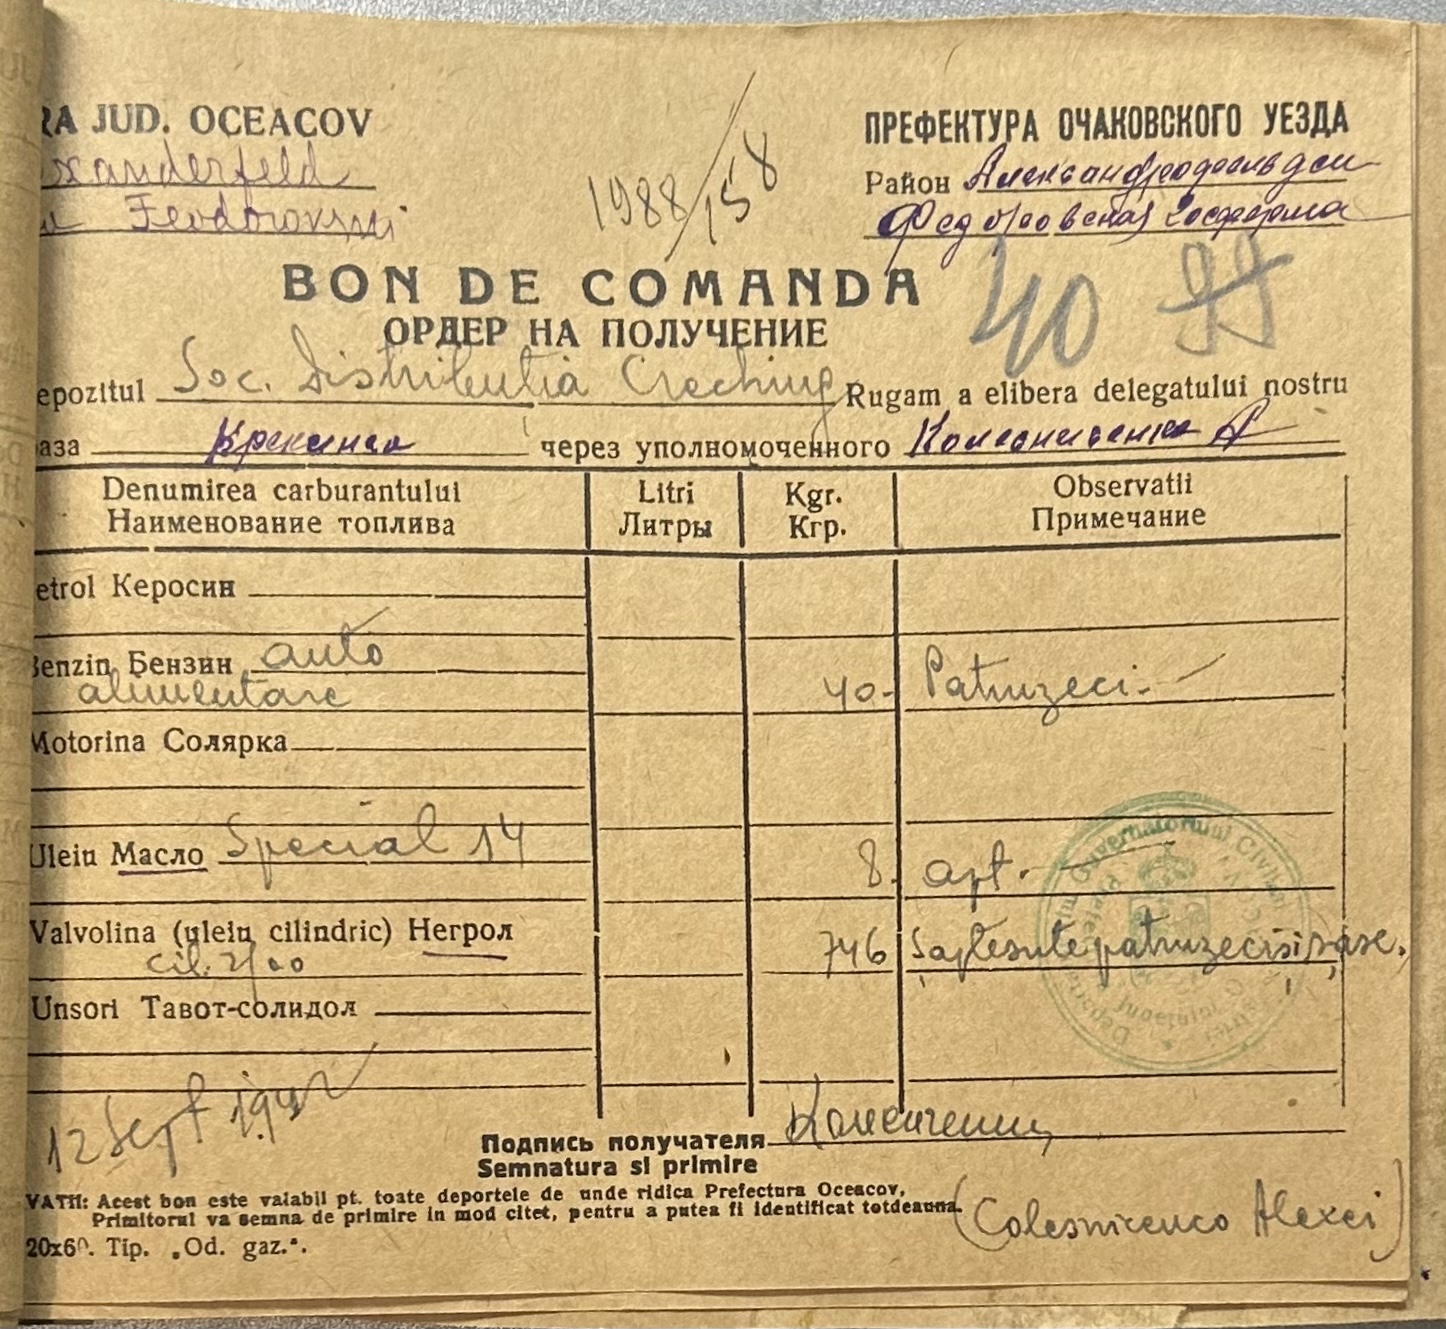 RA JUD. OCEACOV
ПРЕФЕКТУРА ОЧАКОВСКОГО УЕЗДА
xanderfeld
Район Александрофельдский
Feodorovski
Федоровская Госферма
1988/158
BON DE COMANDA
40
ОРДЕР НА ПОЛУЧЕНИЕ
epozitul Soc. Distributia Creching Rugam a elibera delegatului nostru
аза Крекинга через уполномоченного Колесниченко А
Denumirea carburantului Litri Kgr. Observatii
Наименование топлива Литры Кгр. Примечание
etrol Керосин
Benzin Бензин auto
alimentare 40- Patruzeci.-
Motorina Солярка
Uleiu Масло Special 14 8. opt.-
Valvolina (uleiu cilindric) Негрол
cil. 2/00 746 Șaptesutepatruzecișișase.
Unsori Тавот-солидол
Guvernatorul Civil
12 Sept 1942
Подпись получателя
Semnatura si primire
VATII: Acest bon este valabil pt. toate deportele de unde ridica Prefectura Oceacov,
Primitorul va semna de primire in mod citet, pentru a putea fi identificat totdeauna.
(Colesnicenco Alexei)
20x60. Tip. „Od. gaz.".